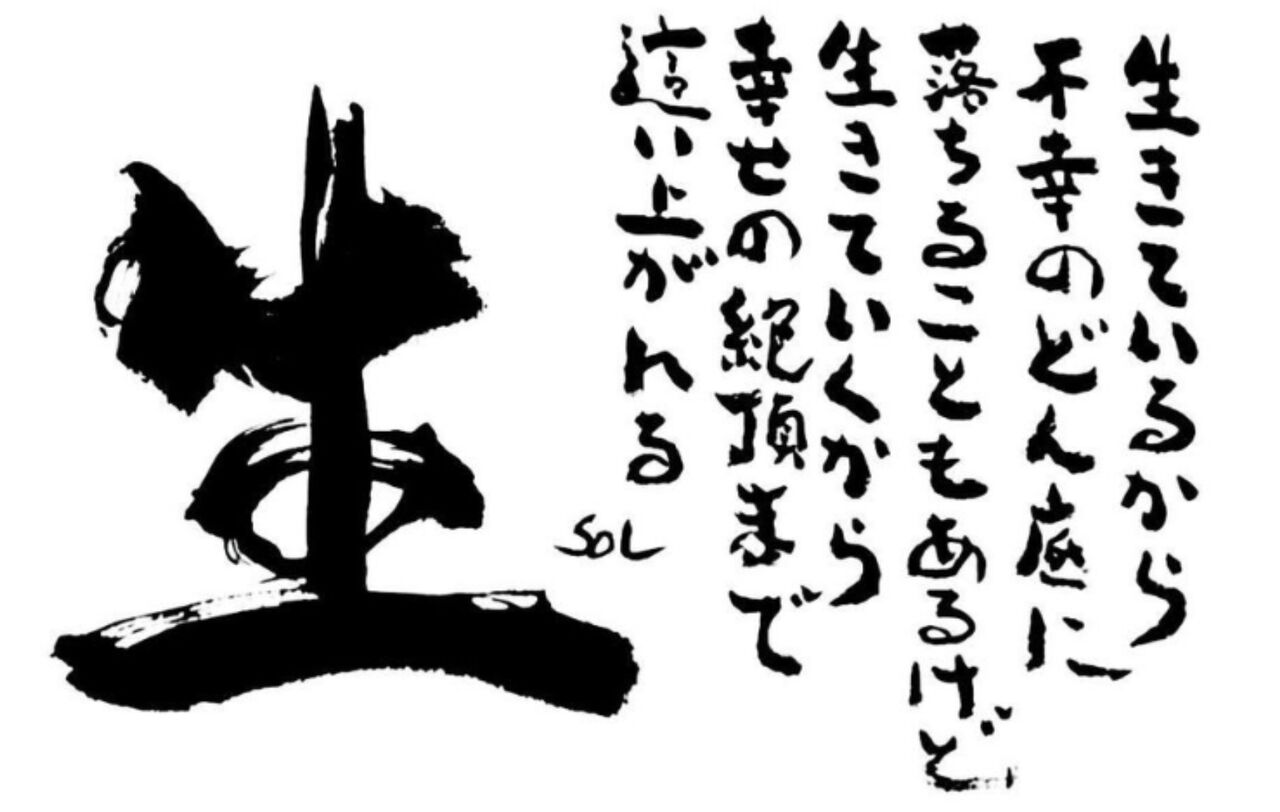 生きているから
不幸のどん底に
落ちることもあるけど
生きていくから
幸せの絶頂まで
這い上がれる
SOL
生